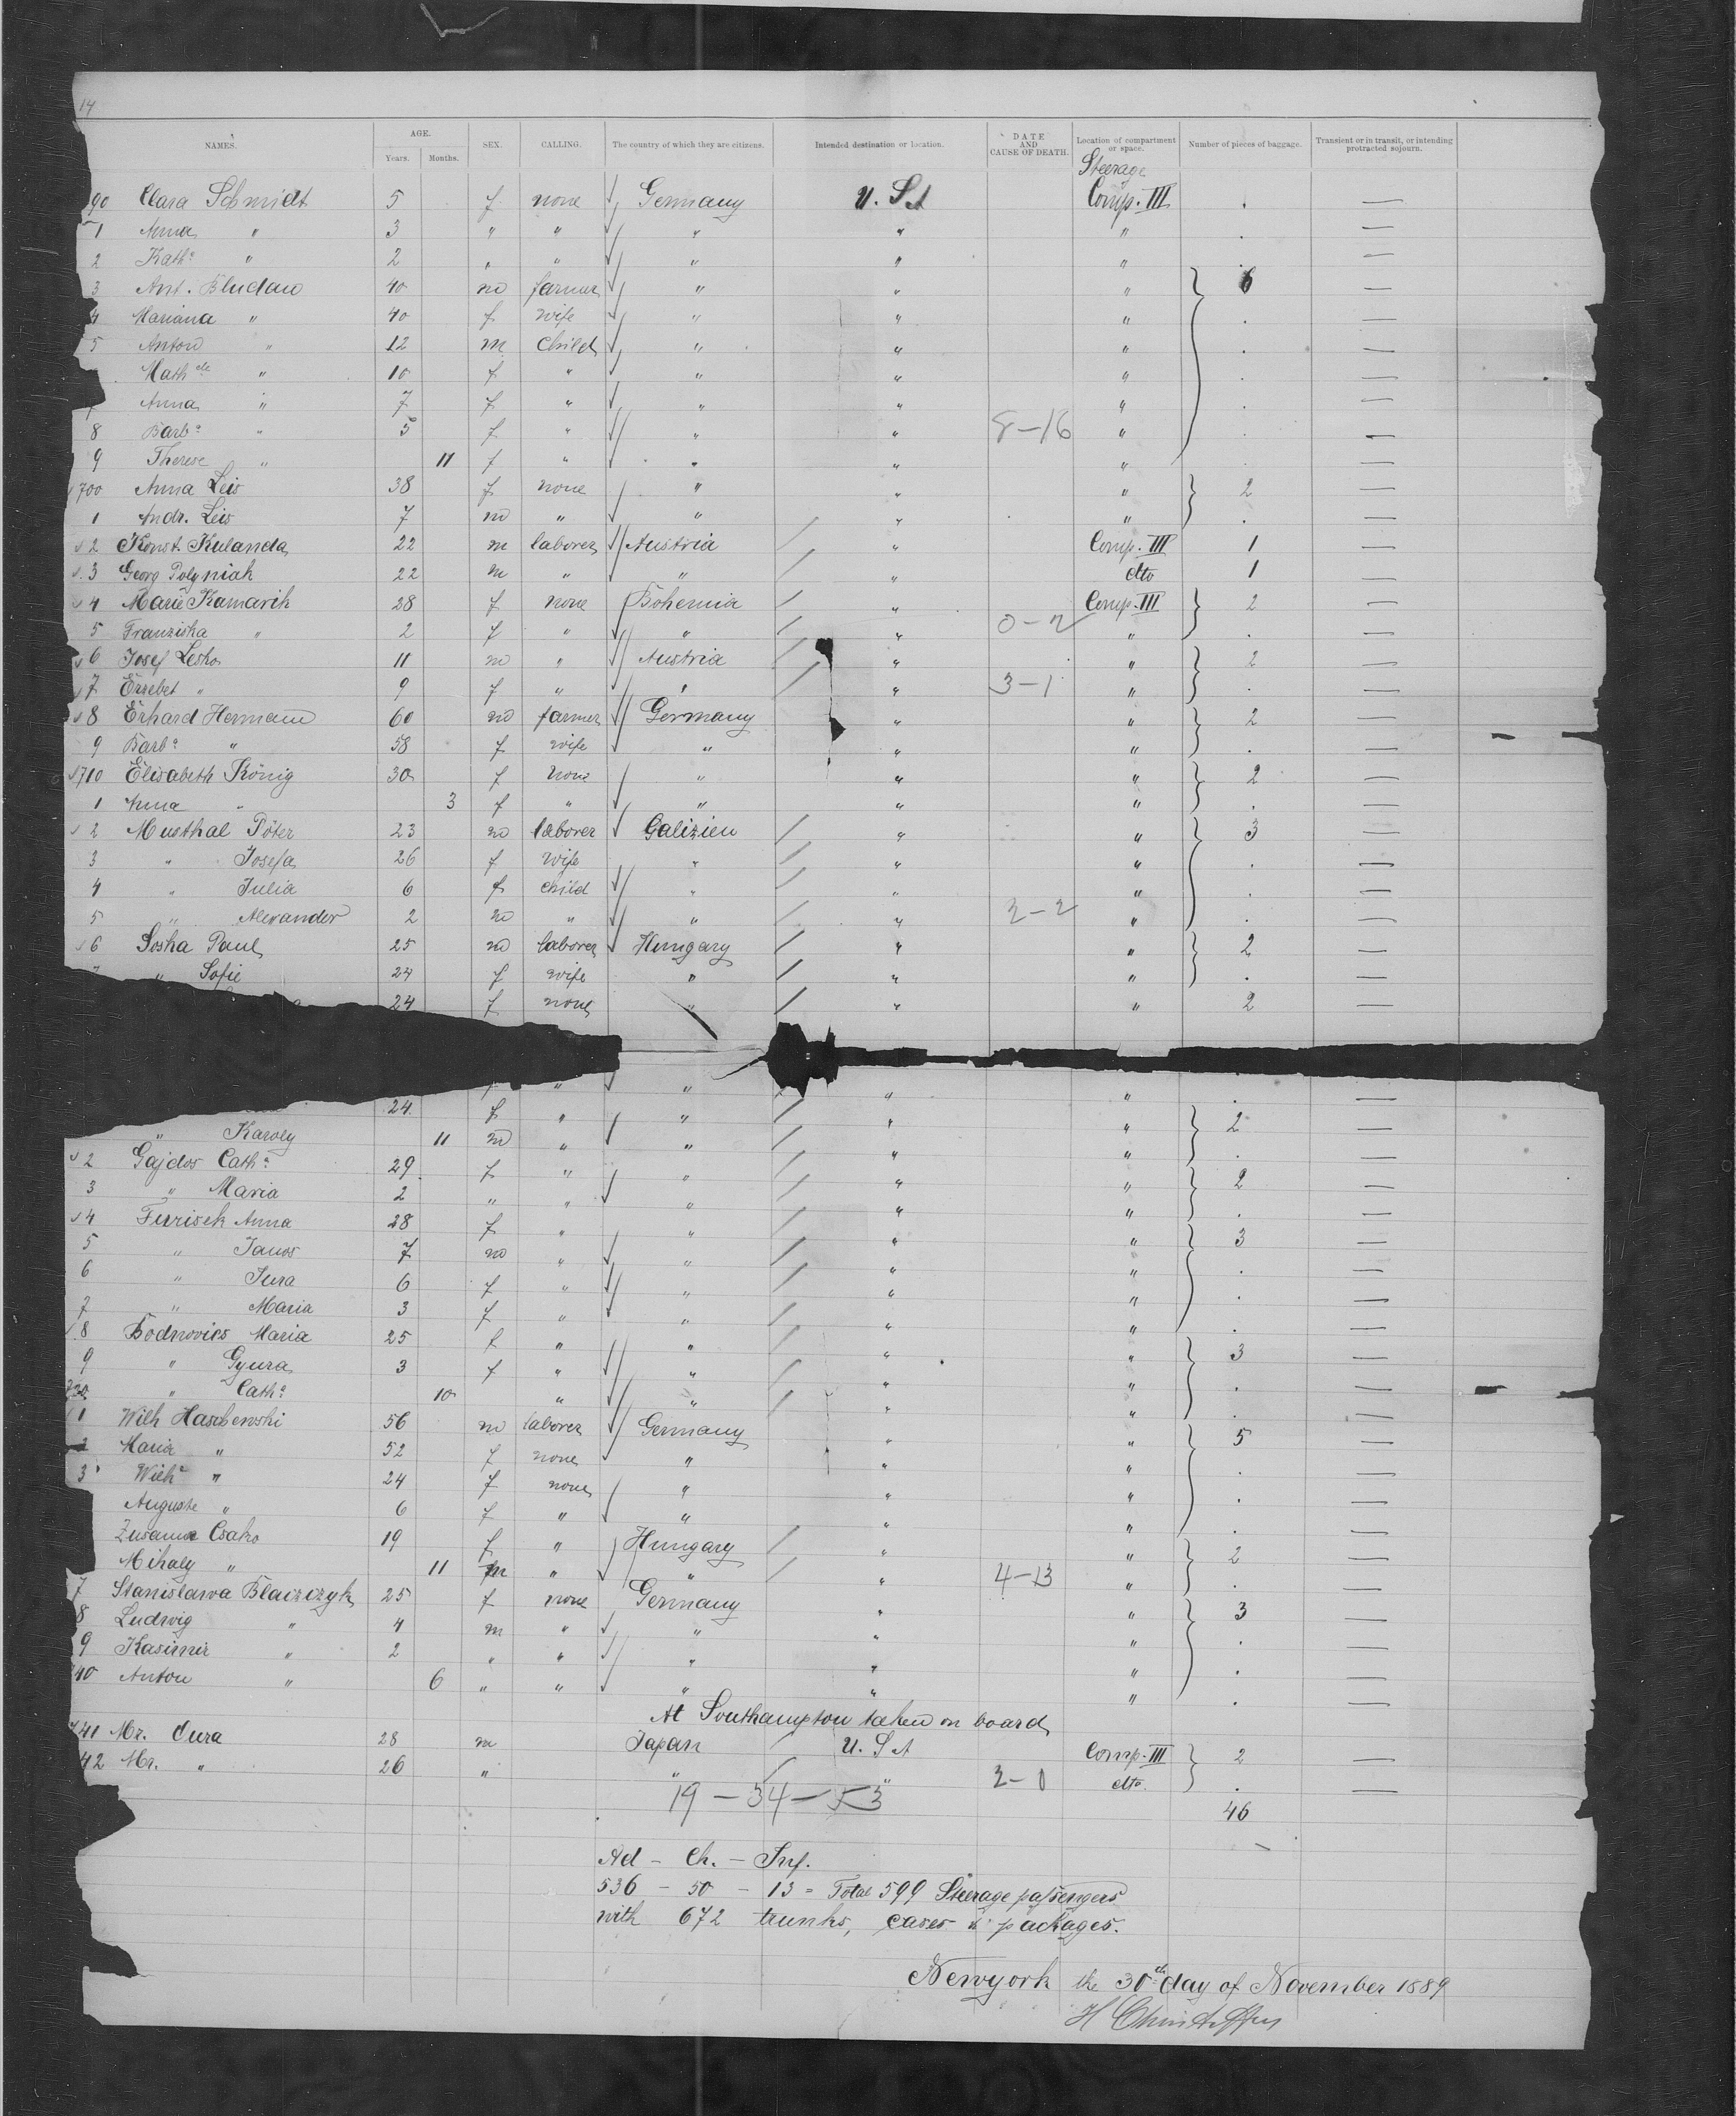 14
NAMES. AGE. Years. Months. SEX. CALLING. The country of which they are citizens. Intended destination or location. DATE AND CAUSE OF DEATH. Location of compartment or space. Number of pieces of baggage. Transient or in transit, or intending protracted sojourn.
Steerage
90 Clara Schmidt 5 f none Germany U. S A Comp. III —
1 Anna " 3 " " " " " —
2 Kath.a " 2 " " " " " —
3 Ant. Bludau 40 m farmer " " " 6 —
4 Mariana " 40 f wife " " " —
5 Anton " 12 m child " " " —
Mathde " 10 f " " " " —
7 Anna " 7 f " " " " —
8 Barb.a " 5 f " " " 8-16 " —
9 Therese " 11 f " " " " —
700 Anna Leis 38 f none " " " 2 —
1 Andr. Leis 7 m " " " " —
2 Konst. Kulanda 22 m laborer Austria " Comp. III 1 —
3 Georg Polyniak 22 m " " " dto 1 —
4 Marie Kamarik 28 f none Bohemia " Comp. III 2 —
5 Franziska " 2 f " " " 0-2 " —
6 Josef Lesko 11 m " Austria " " 2 —
7 Erzebet " 9 f " " " 3-1 " —
8 Erhard Hermann 60 m farmer Germany " " 2 —
9 Barb.a " 58 f wife " " " —
710 Elisabeth König 30 f none " " " 2 —
1 Anna " 3 f " " " " —
2 Musthal Péter 23 m laborer Galizien " " 3 —
3 " Josefa 26 f wife " " " —
4 " Julia 6 f child " " " —
5 " Alexander 2 m " " " 2-2 " —
6 Sosha Paul 25 m laborer Hungary " " 2 —
" Sofie 24 f wife " " " —
24 f none " " " 2 —
f " " " " —
24 f " " " " 2 —
" Karoly 11 m " " " " —
2 Gajdos Cath.a 29 f " " " " 2 —
3 " Maria 2 " " " " " —
4 Furisek Anna 28 f " " " " 3 —
5 " Janos 7 m " " " " —
6 " Jura 6 f " " " " —
7 " Maria 3 f " " " " —
8 Bodnovics Maria 25 f " " " " 3 —
9 " Gyura 3 f " " " " —
730 " Cath.a 10 " " " " —
1 Wilh Haschewski 56 m laborer Germany " " 5 —
2 Maria " 52 f none " " " —
3 Wilh.e " 24 f none " " " —
Auguste " 6 f " " " " —
Zusanna Csako 19 f " Hungary " " 2 —
Mihaly " 11 m " " " 4-13 " —
7 Stanislawa Blaizczyk 25 f none Germany " " 3 —
8 Ludwig " 4 m " " " " —
9 Kasimir " 2 " " " " " —
40 Anton " 6 " " " " " —
At Southampton taken on board
741 Mr. Cura 28 m Japan U. S A Comp. III 2 —
42 Mr. " 26 " " " 2-0 dto. —
19 — 54 — 53
46
Ad — Ch. — Inf.
536 — 50 — 13 = Total 599 Steerage passengers
with 672 trunks, cases & packages.
Newyork the 30th day of November 1889
H Christoffers